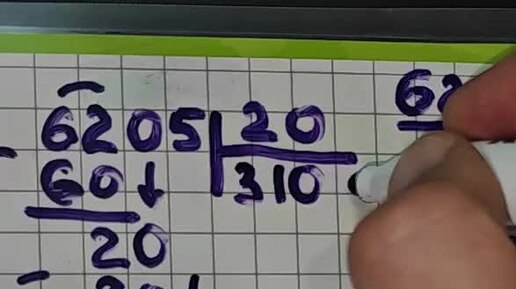 6205 20 62
- 60 310
20
-